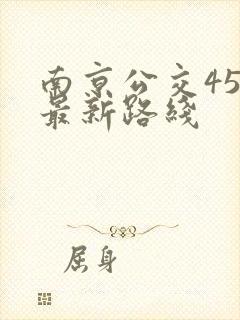 南京公交45
最新路线
屈身